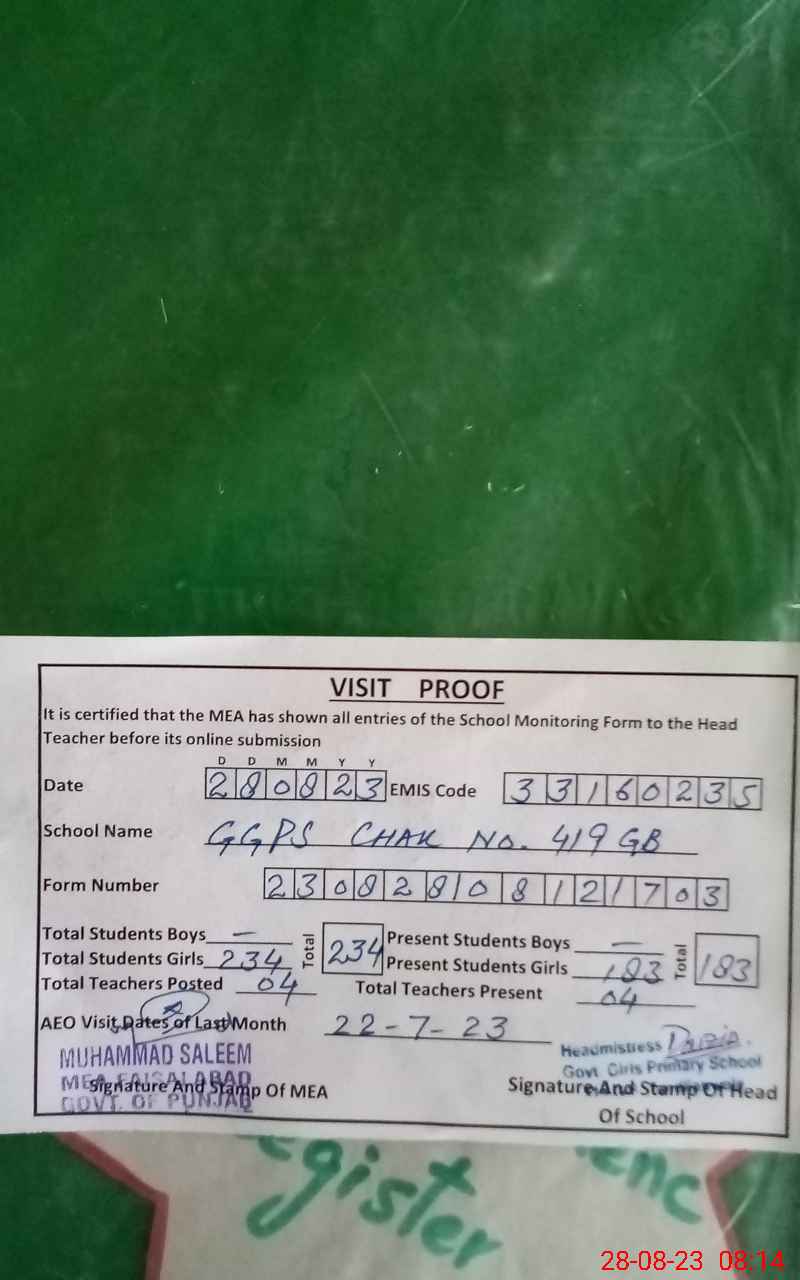 VISIT PROOF
It is certified that the MEA has shown all entries of the School Monitoring Form to the Head
Teacher before its online submission
D D M M Y Y
Date 280823 EMIS Code 33160235
School Name GGPS CHAK NO. 419 GB
Form Number 230828108121703
Total Students Boys — Total 234 Present Students Boys — Total 183
Total Students Girls 234 Present Students Girls 183
Total Teachers Posted 04 Total Teachers Present 04
AEO Visit Dates of Last Month 22-7-23
MUHAMMAD SALEEM
MEA FAISALABAD
GOVT. OF PUNJAB
Signature And Stamp Of MEA
Headmistress
Govt Girls Primary School
Signature And Stamp Of Head
Of School
egister
28-08-23 08:14